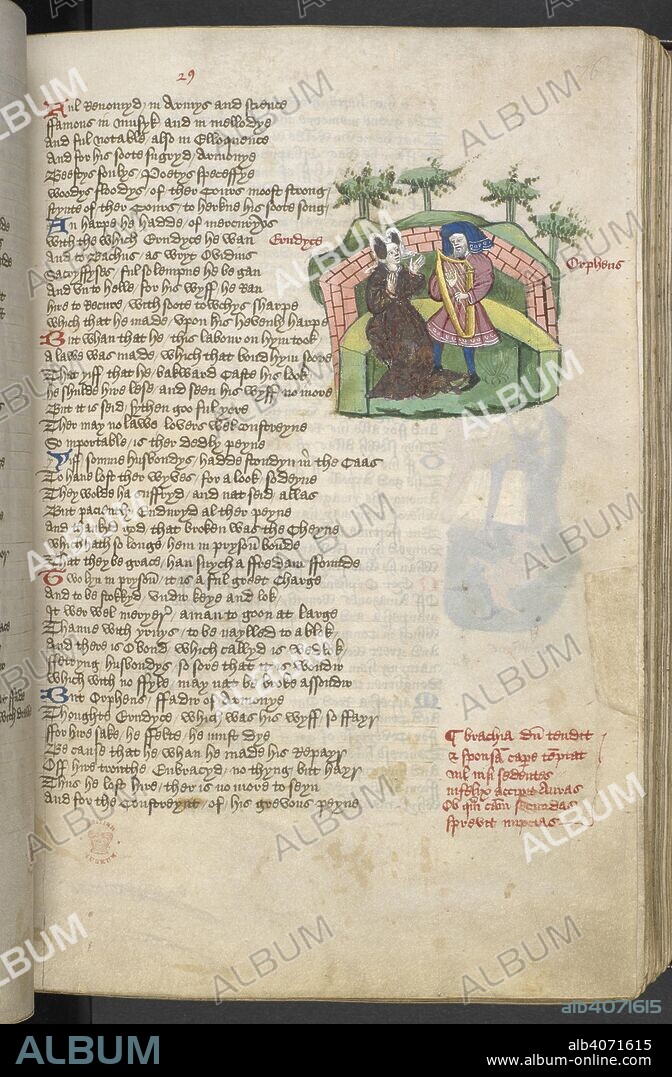 29
76
Ful Renomyd / in Armys and science
ffamous in musyk and in mellodye
And ful notable also in Elloquence
And for his soote sugryd / Armonye
Beestys foulys / Poetys speceffye
woodys floodys / of ther Cours moost strong /
stynte of ther Cours / to herkne his soote song /
An harpe he hadde / of mercuryus
with the which Erudyce he wan
Erudyce
And to Bachus / as wryt Ovidius
Sacryffyses ful solempne he be gan
And un to helle / for his wyff he Ran
hire to Recure / with soote towchys sharpe
which that he made / upon his hevenly harpe
Orpheus
But whan that he / this labour on hym took
A lawe was made / which that bond hym soore
That yiff that he / bakward Caste his look
he shulde hire lese / and seen his wyff no more
But it is seid / sythen goo ful yore
Ther may no lawe lovers wel constreyne
So inportable / is ther dedly peyne
Yiff somme husbondys / hadde stondyn in the Caas
To have lost ther wyves / for a look sodeyne
They wolde ha suffryd / and nat seid allas
But paciently Enduryd al ther peyne
And thankyd god / that broken was the Cheyne
which hath so longe / hem in prysoun bounde
That they be grace / han suych a ffredam ffounde
To lyn in prysoun / it is a ful greet Charge
And to be stokkyd / undir keye and lok
It wer wel meryer / a man to goon at large
Thanne with yrnys / to be naylled to a blok
And there is O bond / which callyd is wedlok
ffetryng husbondys / so sore that it is wondir
which with no ffyle / may nat be broke assondir
But Orpheus / ffadir of Armonye
Thoughte Erudyce which was his wyff so ffayr
ffor hire sake / he ffelte / he must dye
Be cause that he whan he made his Repayr
Off hire trouthe Enbracyd / no thyng but hayr
Thus he lost hire / ther is no more to seyn
And for the Constreynt of his grevous peyne
brachia dum tendit
& sponsam cape temptat
nil nisi sedentes
infelix accipit auras
Ob quam causam secundas
sprevit nupcias
MUSEUM
ALBUM
alb4071615
ALBUM
alb4071615
www.album-online.com